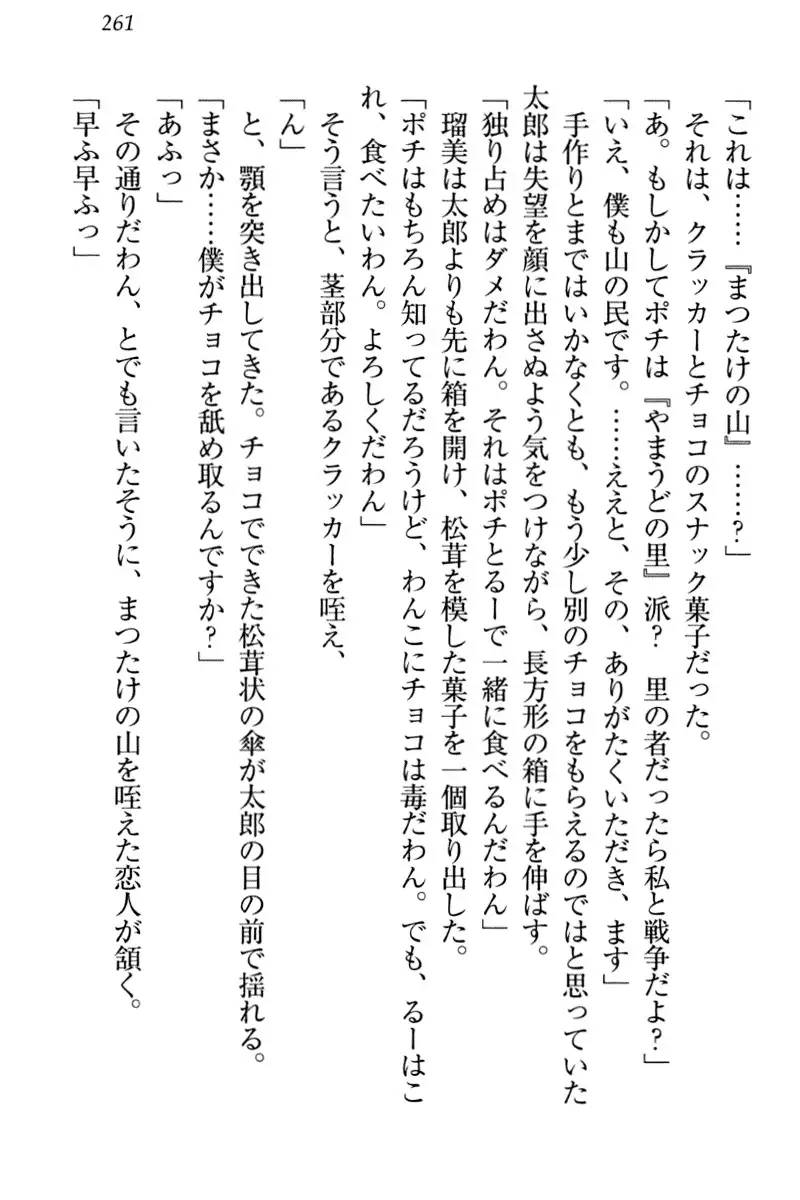 261
「これは……『まつたけの山』……?」
それは、クラッカーとチョコのスナック菓子だった。
「あ。もしかしてポチは『やまうどの里』派?　里の者だったら私と戦争だよ?」
「いえ、僕も山の民です。……ええと、その、ありがたくいただき、ます」
手作りとまではいかなくとも、もう少し別のチョコをもらえるのではと思っていた
太郎は失望を顔に出さぬよう気をつけながら、長方形の箱に手を伸ばす。
「独り占めはダメだわん。それはポチとるーで一緒に食べるんだわん」
瑠美は太郎よりも先に箱を開け、松茸を模した菓子を一個取り出した。
「ポチはもちろん知ってるだろうけど、わんこにチョコは毒だわん。でも、るーはこ
れ、食べたいわん。よろしくだわん」
そう言うと、茎部分であるクラッカーを咥え、
「ん」
と、顎を突き出してきた。チョコでできた松茸状の傘が太郎の目の前で揺れる。
「まさか……僕がチョコを舐め取るんですか?」
「あふっ」
その通りだわん、とでも言いたそうに、まつたけの山を咥えた恋人が頷く。
「早ふ早ふっ」